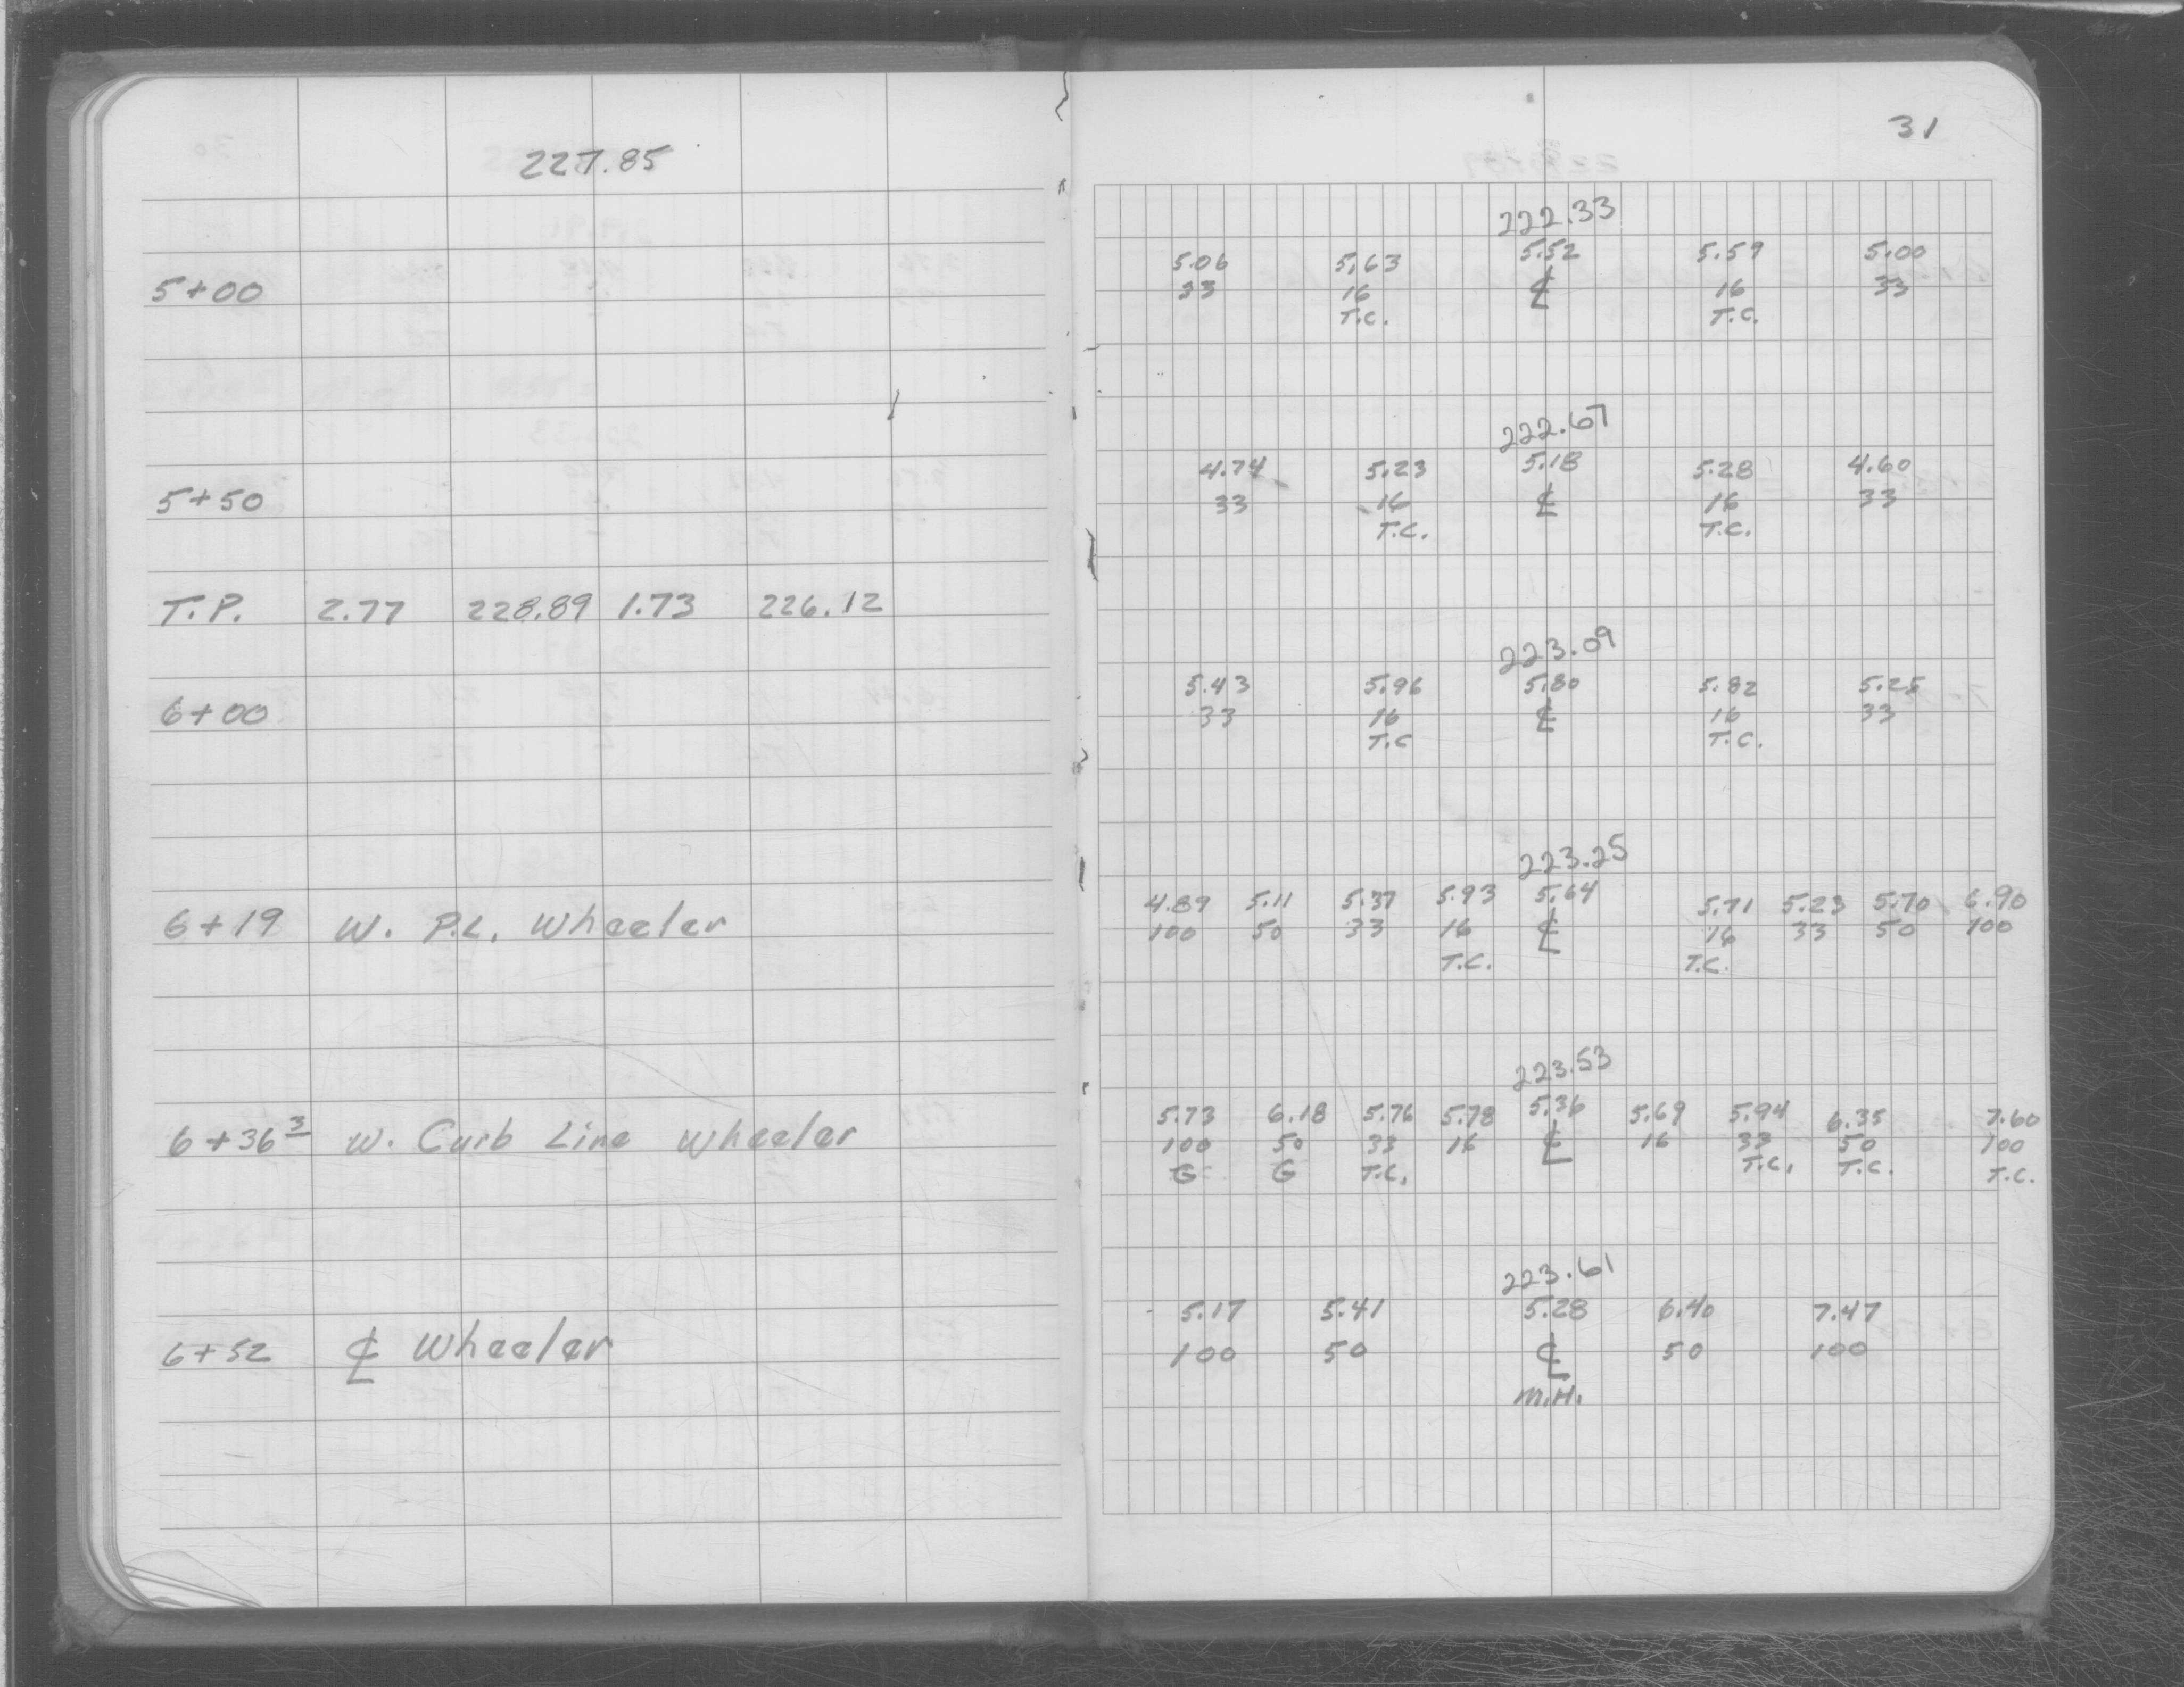 227.85
5+00
5+50
T.P. 2.77 228.89 1.73 226.12
6+00
6+19 W. P.L. Wheeler
6+36 3 W. Curb Line Wheeler
6+52 ℄ Wheeler
31
222.33
5.06 5.63 5.52 5.59 5.00
33 16 ℄ 16 33
T.C. T.C.
222.67
4.74 5.23 5.18 5.28 4.60
33 16 ℄ 16 33
T.C. T.C.
223.09
5.43 5.96 5.80 5.82 5.25
33 16 ℄ 16 33
T.C T.C.
223.25
4.89 5.11 5.37 5.93 5.64 5.71 5.23 5.70 6.90
100 50 33 16 ℄ 16 33 50 100
T.C. T.C.
223.53
5.73 6.18 5.76 5.78 5.36 5.69 5.94 6.35 7.60
100 50 33 16 ℄ 16 33 50 100
G G T.C. T.C. T.C. T.C.
223.61
5.17 5.41 5.28 6.40 7.47
100 50 ℄ 50 100
M.H.